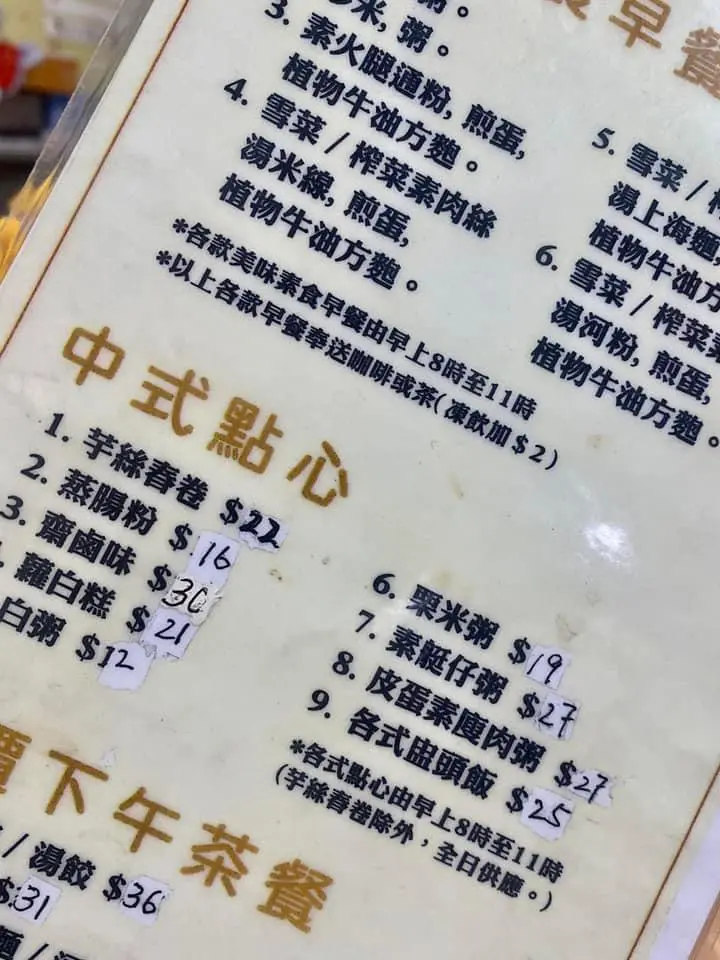 早餐
米, 粥。
3. 素火腿通粉, 煎蛋,
植物牛油方麵。
4. 雪菜 / 榨菜素肉絲
湯米線, 煎蛋,
植物牛油方麵。
5. 雪菜 /
湯上海麵,
植物牛油方
6. 雪菜 / 榨菜素
湯河粉, 煎蛋,
植物牛油方麵。
*各款美味素食早餐由早上8時至11時
*以上各款早餐奉送咖啡或茶(凍飲加$2)
中式點心
1. 芋絲春卷 $22
2. 蒸腸粉 $16
3. 齋鹵味 $30
蘿白糕 $21
白粥 $12
6. 粟米粥 $19
7. 素艇仔粥 $27
8. 皮蛋素瘦肉粥 $27
9. 各式盅頭飯 $25
*各式點心由早上8時至11時
(芋絲春卷除外，全日供應。)
下午茶餐
/ 湯餃 $36
$31